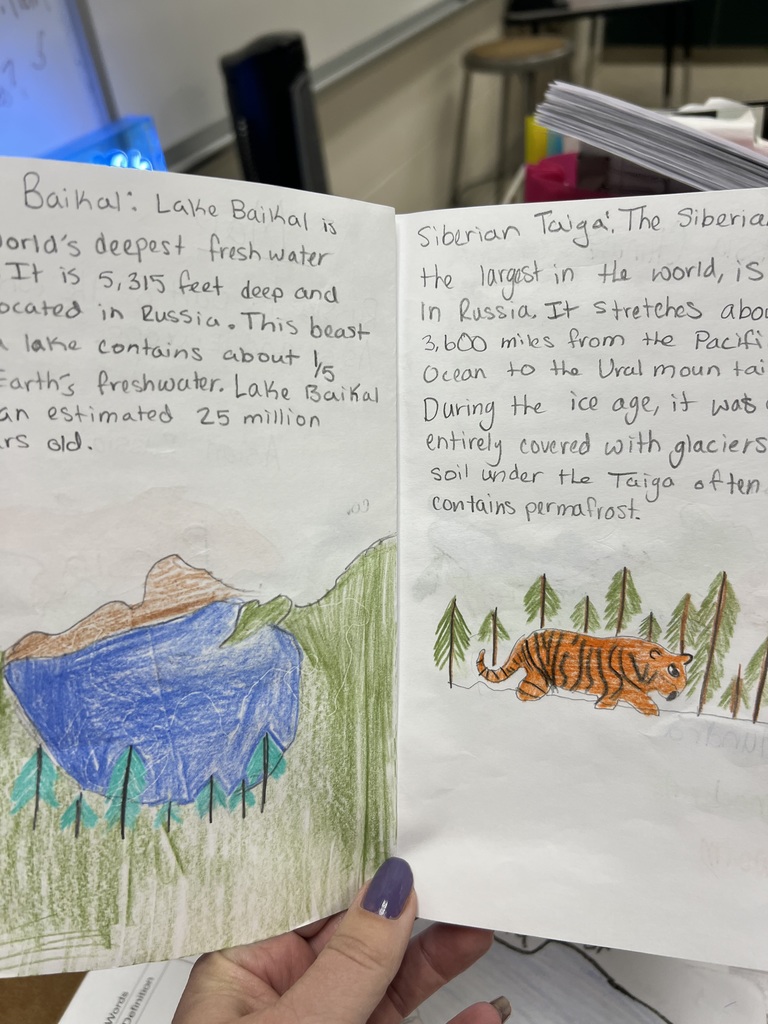 Baikal: Lake Baikal is
orld's deepest fresh water
It is 5,315 feet deep and
ocated in Russia. This beast
lake contains about 1/5
Earth's freshwater. Lake Baikal
an estimated 25 million
rs old.
Siberian Taiga: The Siberia
the largest in the world, is
In Russia. It stretches abo
3,600 miles from the Pacifi
Ocean to the Ural moun tai
During the ice age, it was
entirely covered with glaciers
soil under the Taiga often
contains permafrost.
Words
Definition